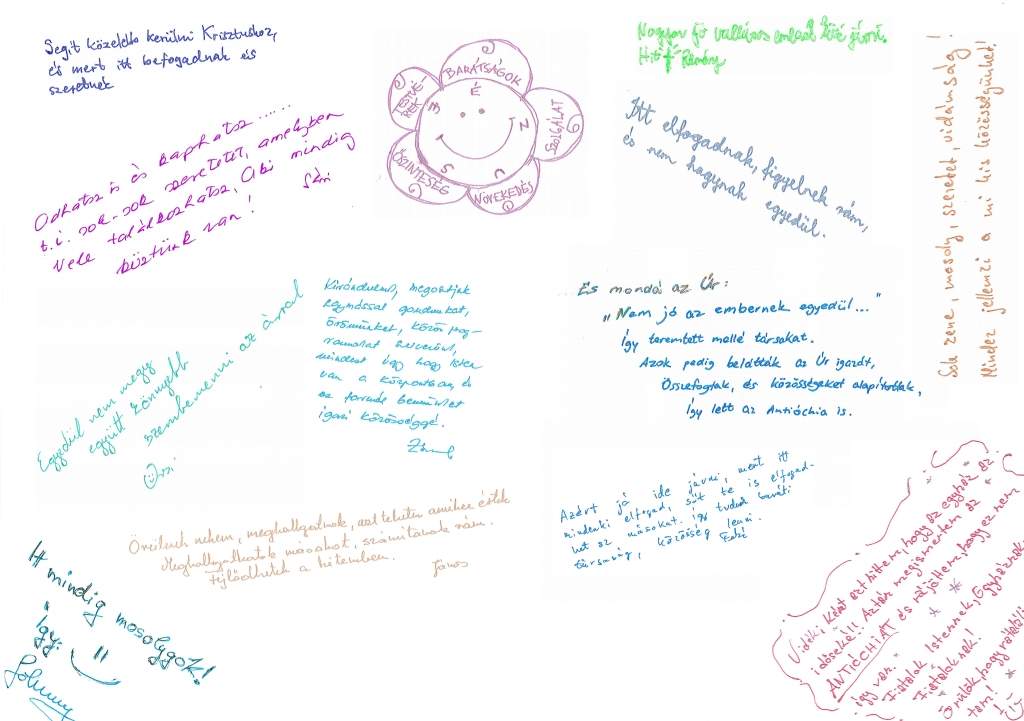 Segít közelebb kerülni Krisztushoz,
és mert itt befogadnak és
szeretnek
BARÁTSÁGOK
SZOLGÁLAT
NÖVEKEDÉS
ŐSZINTESÉG
É
Z
U
S
Nagyon jó vallásos emberek közé járni.
Hit + Remény
Adhatsz is és kaphatsz.....
t.i. sok-sok szeretetet, amelyben
Vele találkozhatsz, Aki mindig
köztünk van!
Itt elfogadnak, figyelnek rám,
és nem hagynak egyedül.
Sok zene, mosoly, szeretet, vidámság!
Mindez jellemzi a mi kis közösségünket!
Egyedül nem megy
együtt könnyebb
szembemenni az árral
Orsi
Kirándulunk, megosztjuk
egymással gondunkat,
örömünket, közös prog-
ramokat szervezünk,
mindezt úgy hogy Isten
van a központban, és
ez formál bennünket
igazi közösséggé.
És mondá az Úr:
"Nem jó az embernek egyedül..."
Így teremtett mellé társakat.
Azok pedig belátták az Úr igazát,
Összefogtak, és közösségeket alapítottak,
Így lett az Antióchia is.
Azért jó ide járni, mert itt
mindenki elfogad, sőt te is elfogad-
hatsz másokat. Így tudunk baráti
társaság, közösség lenni.
Örülnek nekem, meghallgatnak, azt tehetem amihez értek
Meghallgathatok másokat, számítanak rám.
Fejlődhetek a hitemben.
János
Itt mindig mosolygok!
Így:
Johnny
Vidéki, ként azt hittem, hogy az egyház az
időseké!! Aztán megismertem az
ANTIÓCHIÁT és rájöttem, hogy ez nem
így van.
Fiatalok Istennek, Egyháznak,
Fiataloknak!
Örülök, hogy rátalál-
tam!